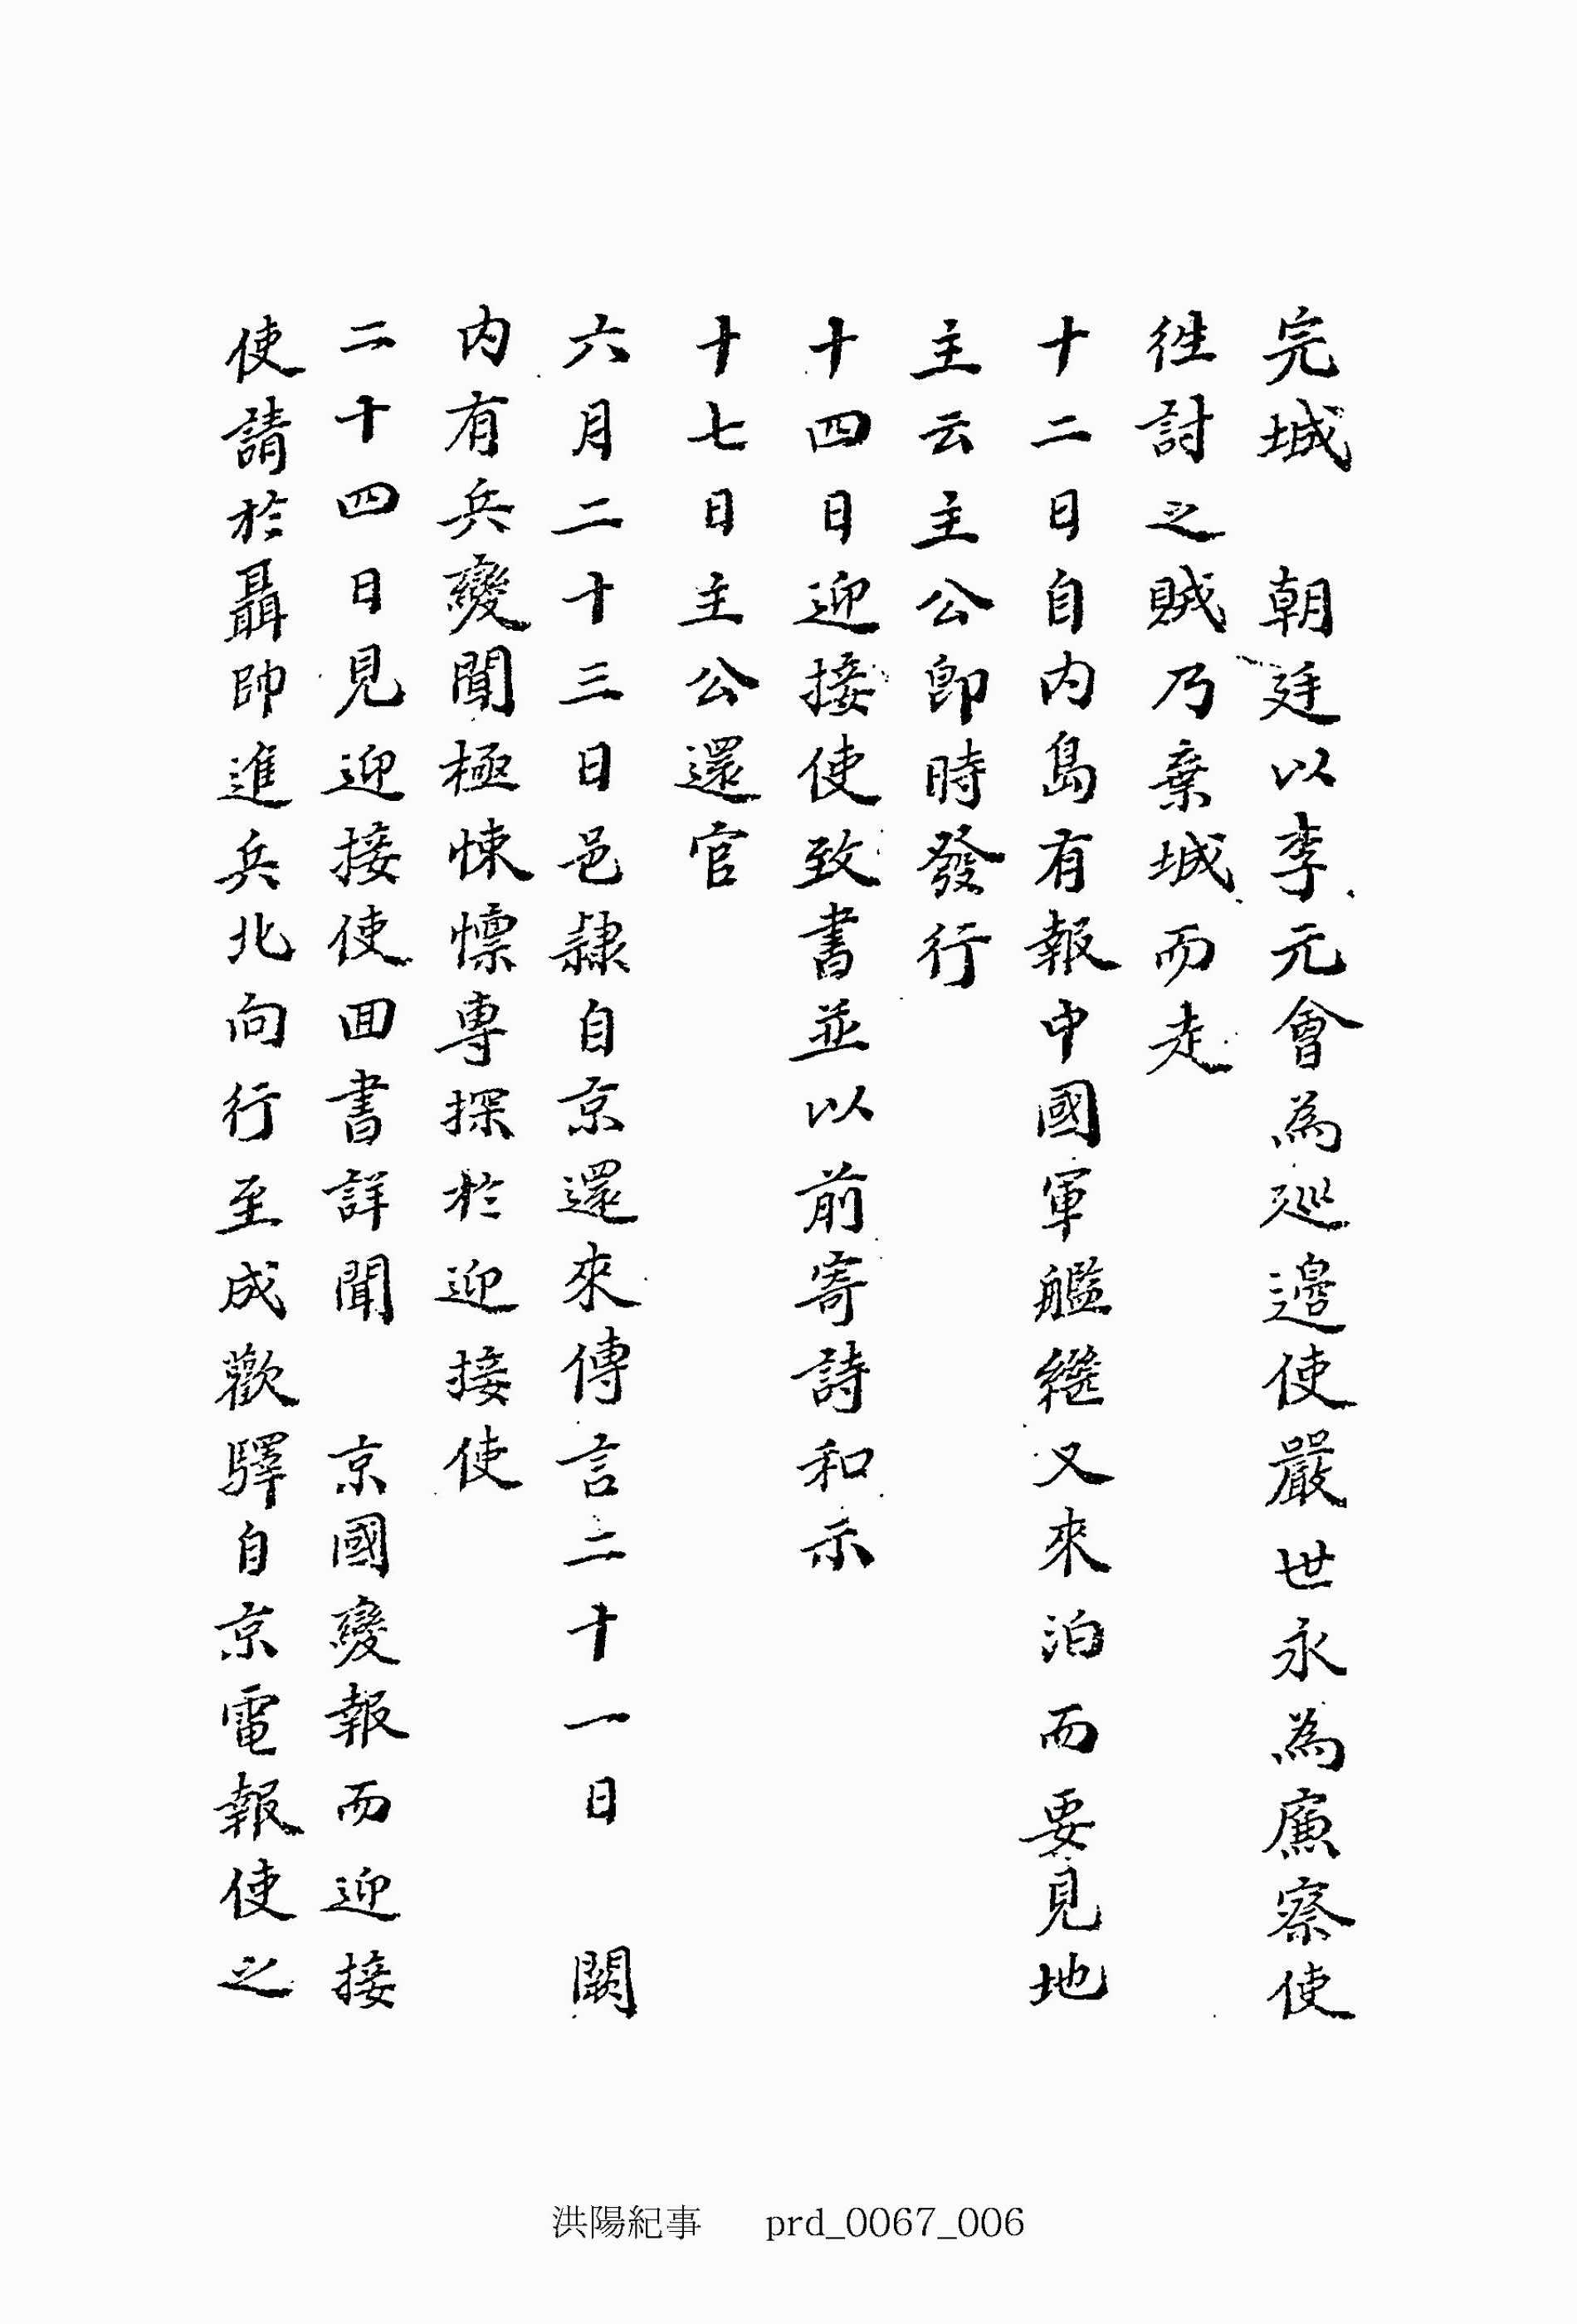 完城　朝廷以李元會為廵邊使嚴世永為廉察使
徃討之賊乃棄城而走
十二日自内島有報中國軍艦継又來泊而要見地
主云主公卽時發行
十四日迎接使致書並以前寄詩和示
十七日主公還官
六月二十三日邑隷自京還來傳言二十一日　闕
内有兵變聞極悚懍専探於迎接使
二十四日見迎接使回書詳聞　京國變報而迎接
使請於聶帥進兵北向行至成歡驛自京電報使之
洪陽紀事　prd_0067_006